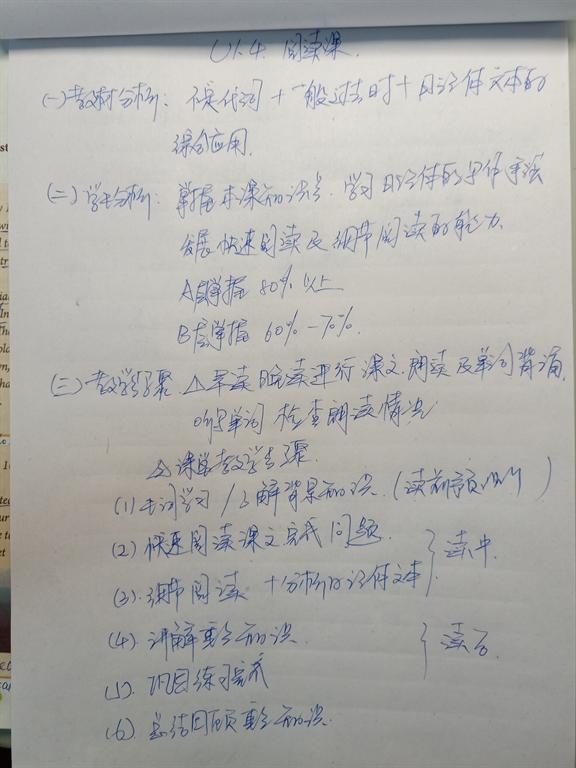 U1.4. 阅读课
(一)教材分析: 不定代词 + 一般过去时 + 日记体文本的
综合应用.
(二)学生分析: 掌握本课知识点. 学习日记体的写作手法
发展快速阅读及细节阅读的能力.
A层掌握 80% 以上
B层掌握 60%-70%.
(三)教学步骤. △早读晚读进行课文.朗读及单词背诵.
听写单词 检查朗读情况
△课堂教学步骤.
(1)生词学习/了解背景知识. (读前预测)
(2) 快速阅读课文完成问题.
(3).细节阅读 + 分析日记体文本 } 读中
(4). 讲解重点知识. } 读后
(5). 巩固练习完成
(6). 总结回顾重点知识.